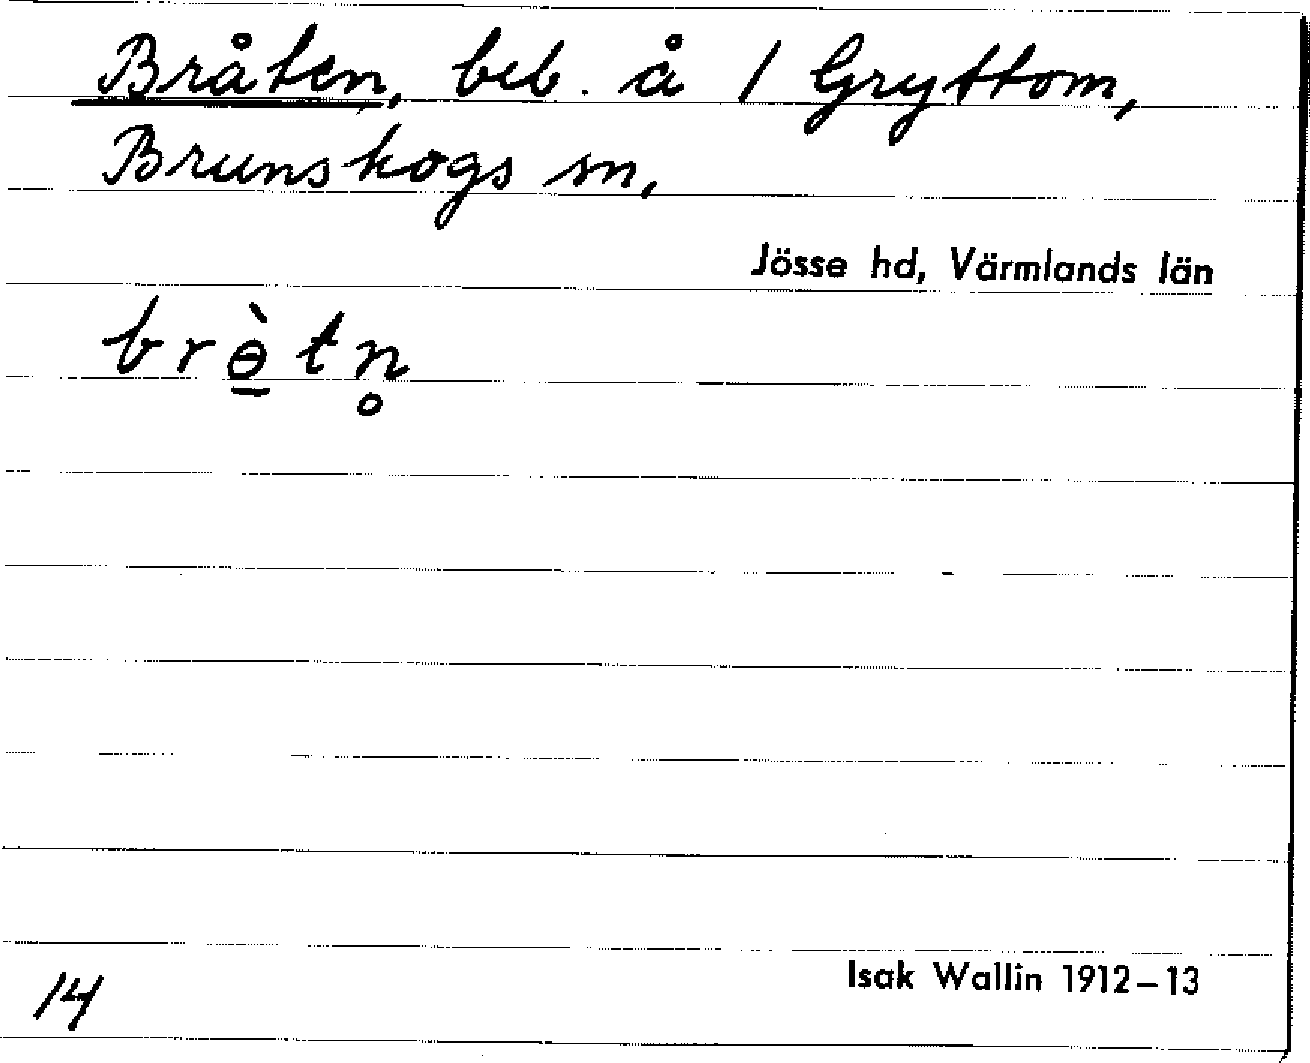 Bråten, beb. å 1 Gryttom,
Brunskogs sn,
Jösse hd, Värmlands län
brɵ̠̀tn̥
Isak Wallin 1912–13
14